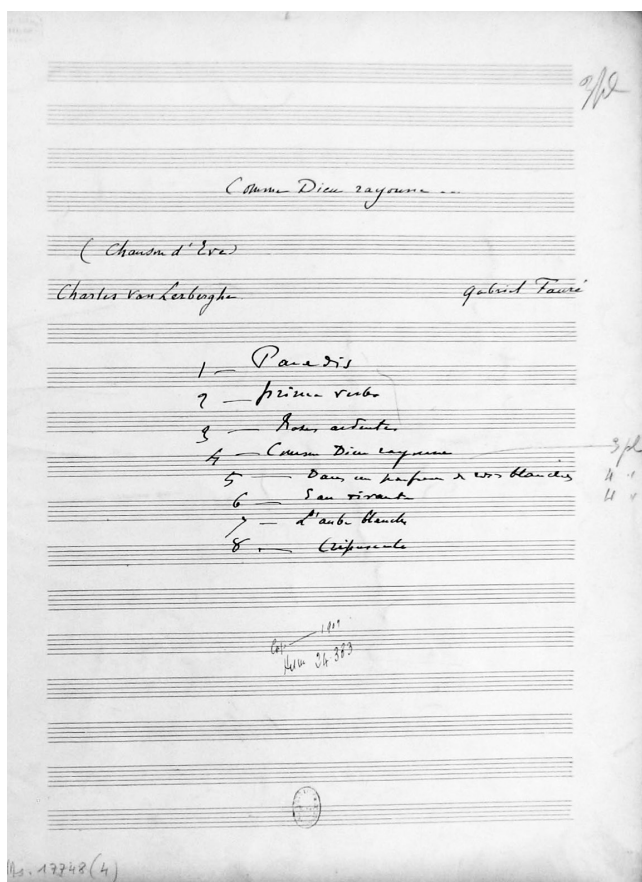 Comme Dieu rayonne ...
(Chanson d'Eve)
Charles Van Lerberghe Gabriel Fauré
1 — Paradis
2 — prima verba
3 — Roses ardentes
4 — Comme Dieu rayonne 3 pl
5 — Dans un parfum de roses blanches 4 "
6 — Eau vivante 4 "
7 — L'aube blanche
8 — Crépuscule
1909
24.383
Ms. 17748 (4)